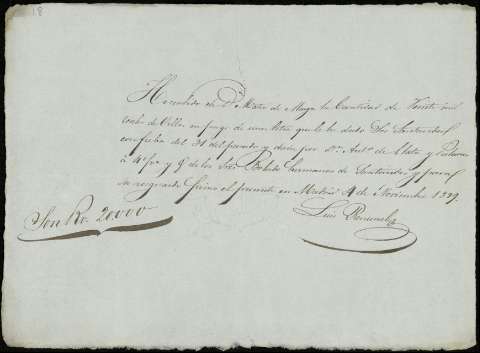 18
He recibido de Dn. Mateo de Murga la Cantidad de Veinte mil
reales de Vellon en pago de una letra que le he dado Sre Santander
con fecha del 31 del pasado y dada por Dn. Anto. de
á 4 y de los Sres hermanos de Santander y para
su resguardo firmo el presente en Madrid 4 de Noviembre 1839.
Luis
Son Rs. 20000